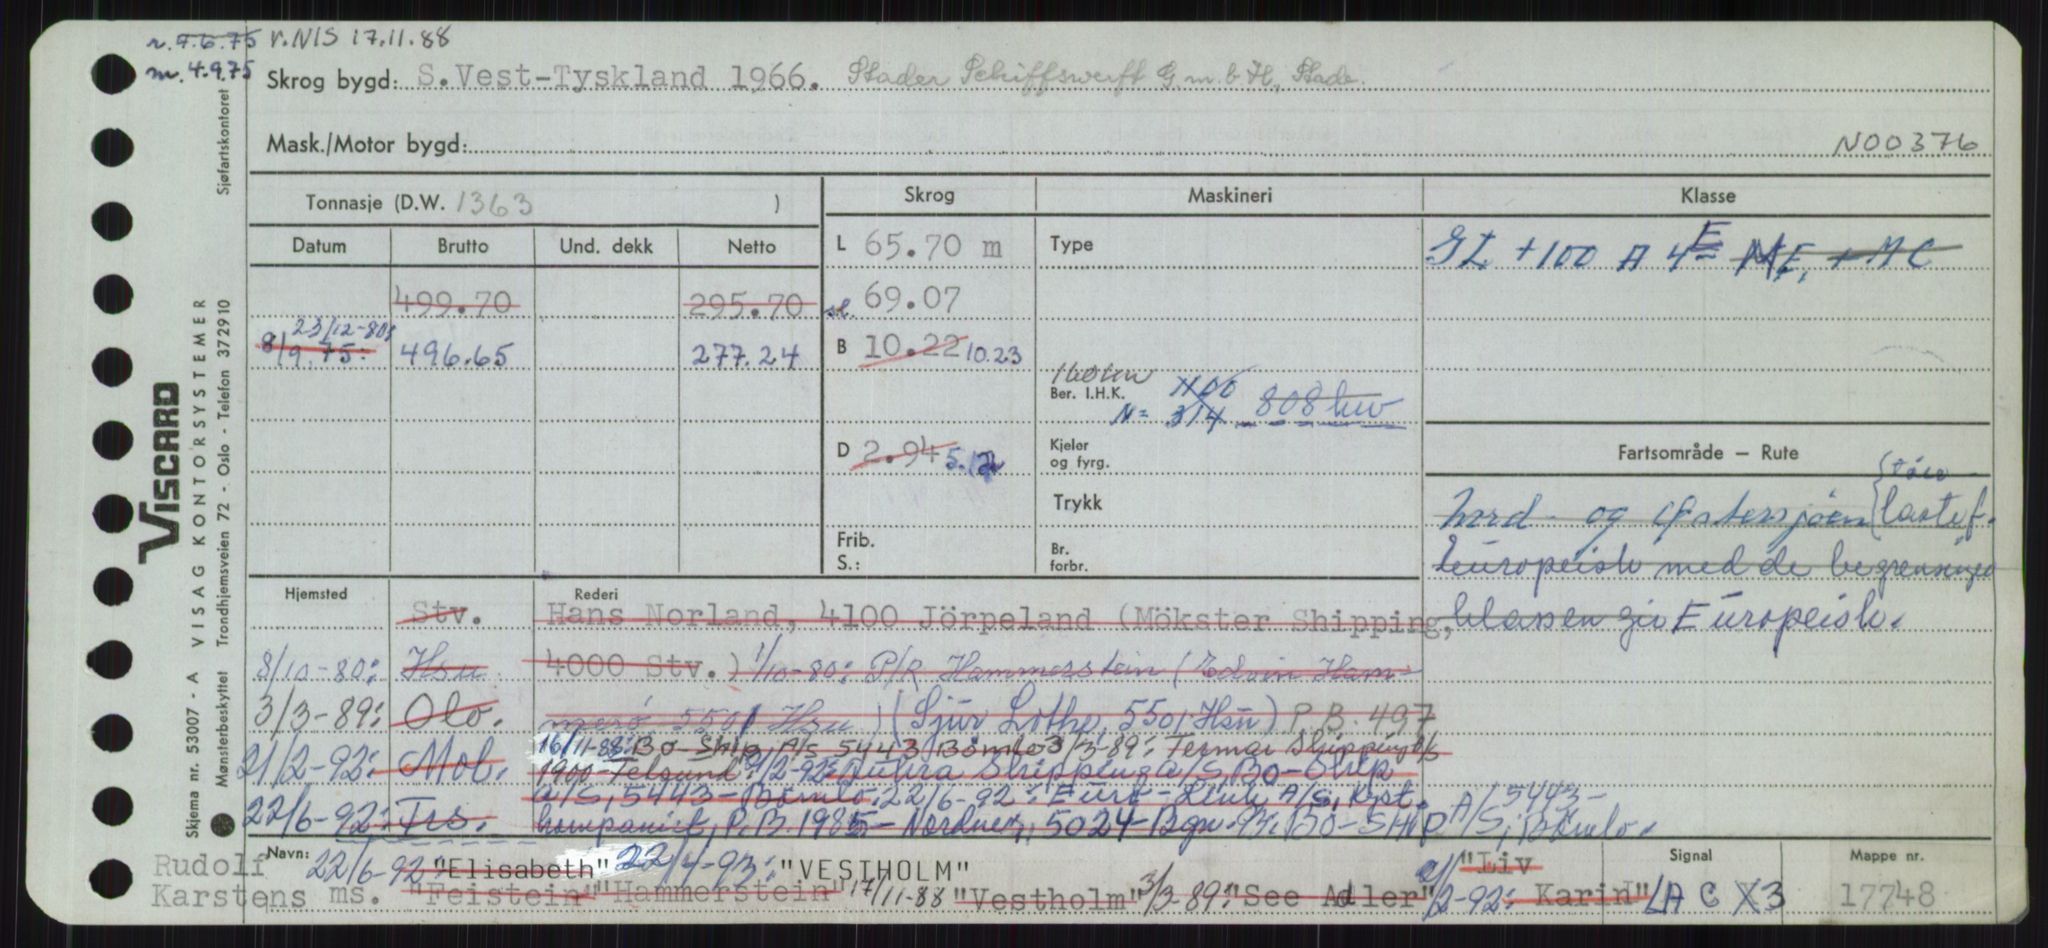 r. 9.6.75 r.NIS 17.11.88
m. 4.9.75
Skrog bygd: S.Vest-Tyskland 1966. Stader Schiffswerft G.m.b.H., Stade.
Mask./Motor bygd:
N00376
Tonnasje (D.W. 1363 )
Skrog
Maskineri
Klasse
Datum Brutto Und. dekk Netto
L 65.70 m
Type
GL +100 A 4 E ME, + MC
499.70 295.70
69.07
23/12-80:
8/9.75: 496.65 277.24
B 10.22 10.23
160 kw
Ber. I.H.K. 1100
N= 314 808 kw
D 2.94 5.12
Kjeler
og fyrg.
Fartsområde — Rute
Trykk
Nord- og Østersjøen lastef.
Frib.
S.:
Br.
forbr.
Europeisk med de begrensninger
klassen gir Europeisk.
Hjemsted
Rederi
Stv. Hans Norland, 4100 Jörpeland (Mökster Shipping,
8/10-80: Hsu 4000 Stv.) 1/10-80: P/R Hammerstein (Edvin Ham-
3/3-89: Olo. merö 5501 Hsu) (Sjur Lothe, 5501 Hsu) P.B. 497
21/2-92: Mol. 16/11-88: Bo-Ship A/S 5443 Bömlo 3/3-89: Fermar Shipping A/S
1900-Fetsund. 21/2-92: Shipping a/S, Bo-Ship
22/6-92: Frs. a/S, 5443-Bömlo. 22/6-92: Euro-Link A/S, Kyst-
kompaniet, P.B. 1985-Nordnes, 5024-Bgn. 93: BO-SHIP A/S, 5443-Bömlo.
Navn: 22/6-92 "Elisabeth" 22/4-93: "VESTHOLM"
Rudolf
Karstens ms. "Feistein" "Hammerstein" 17/11-88 "Vestholm" 3/3-89: "See Adler" 21/2-92: "Liv Karin"
Signal
LACX3
Mappe nr.
17748
VISCARD
VISAG KONTORSYSTEMER
Skjema nr. 53007 - A
Mønsterbeskyttet Trondhjemsveien 72 - Oslo - Telefon 372910
Sjøfartskontoret